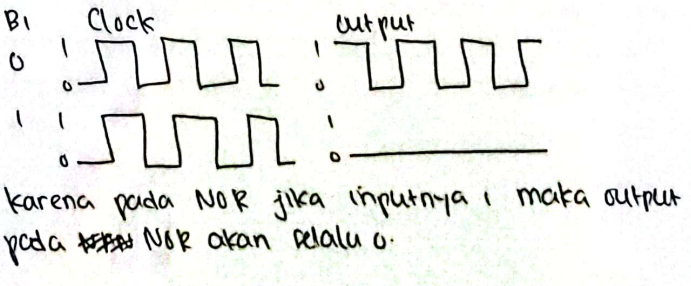 B1 Clock output
0 1 0 1 0
1 1 0 1 0
karena pada NOR jika inputnya 1 maka output
pada NOR akan selalu 0.